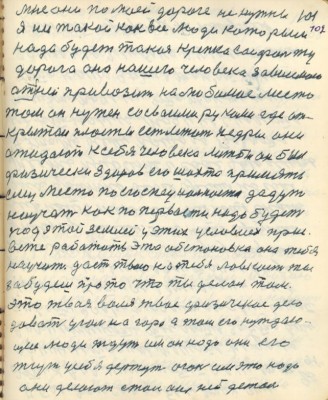 мне они по моей дороге не нужны 101
я ни такой как все люди каторым 107
нада будет такая крепка
дорога ана нашего человека зависимаго
атней привозит на любимае место
там он нужен сосваими руками где от-
крытаи пласты недры они
ажидают ксебя человека литби он был
физически здаров его шахта принять
место поспециальности дадут
научат как по первасти надо будет
под этой землей у этих условиях при-
дется работать это обстановка она тебя
научит даст тваю на тебя ловкаст ты
забудиш про то что ты делал там
это твая воля твае физическае дело
давать угал на гора а там его нуждаю-
щие люди ждут им он надо они его
жгут усебя держут огон им это надо
они делают стал из ней детал